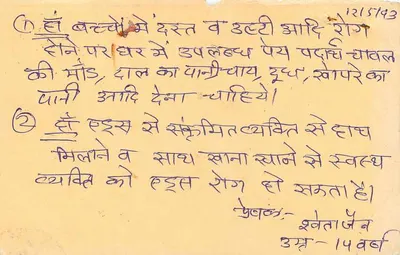 12/5/93
① हाँ बच्चों में दस्त व उल्टी आदि रोग
होने पर घर में उपलब्ध पेय पदार्थ चावल
की माँड, दाल का पानी चाय, दूध, खोपरे का
पानी आदि देना चाहिये।
② हाँ एड्स से संक्रमित व्यक्ति से हाथ
मिलाने व साथ खाना खाने से स्वस्थ
व्यक्ति को एड्स रोग हो सकता है।
प्रेषक:-
श्वेता जैन
उम्र - 14 वर्ष